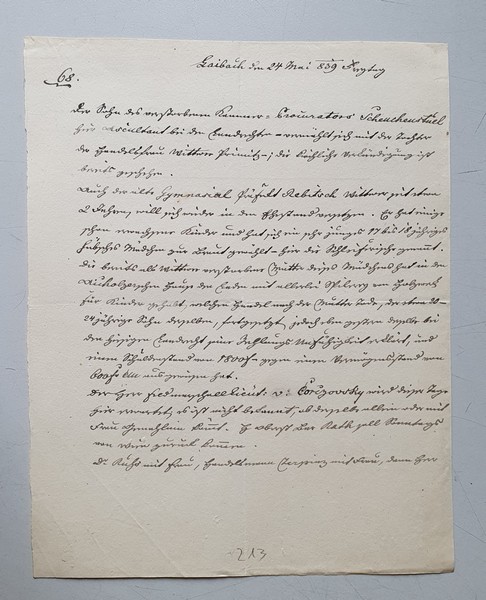 68.
Laibach den 24 Mai 839 Freytag
Der Sohn des verstorbenen Kammer-Procurators Scheuchenstuel
hier Ascultant bei dem Landrechte – vermählt sich mit der Tochter
der Handelsfrau Wittwe Primitz –; die kirchliche Verkündigung ist
bereits geschehen.
Auch der alte Gymnasial Präfekt Rebitsch Wittwer seit etwa
2 Jahren, will sich wieder in den Ehestand versetzen. Er hat einige
schon erwachsene Kinder und hat sich ein sehr junges 17 bis 18 jähriges
hübsches Mädchen zur Braut gewählt – hier die Schleiferische genannt.
die bereits als Wittwe verstorbene Mutter dieses Mädchens hat in dem
Hause den Laden mit allerlei von Holzwaar
für Kinder gehabt, welchen Handel nach der Mutter Tode, der etwa 20-
24 jährige Sohn derselben, fortgesetzt, jedoch eben gestern derselbe bei
dem hiesigen Landrecht seine Zahlungs Unfähigkeit erklärt, und
einen Schuldenstand von 1800 f gegen einen Vermögensstand von
600 f CM ausgewiesen hat.
Der Herr Feldmarschall Lieut: v: wird dieser Tage
hier erwartet, es ist nicht bekannt, ob derselbe allein oder mit
Frau Gemahlinn kömmt. H Oberst Bar. Rath soll Sonntags
von Wien zurück kommen.
Dr. mit Frau, Handelsmann mit Frau, dann Herr
213